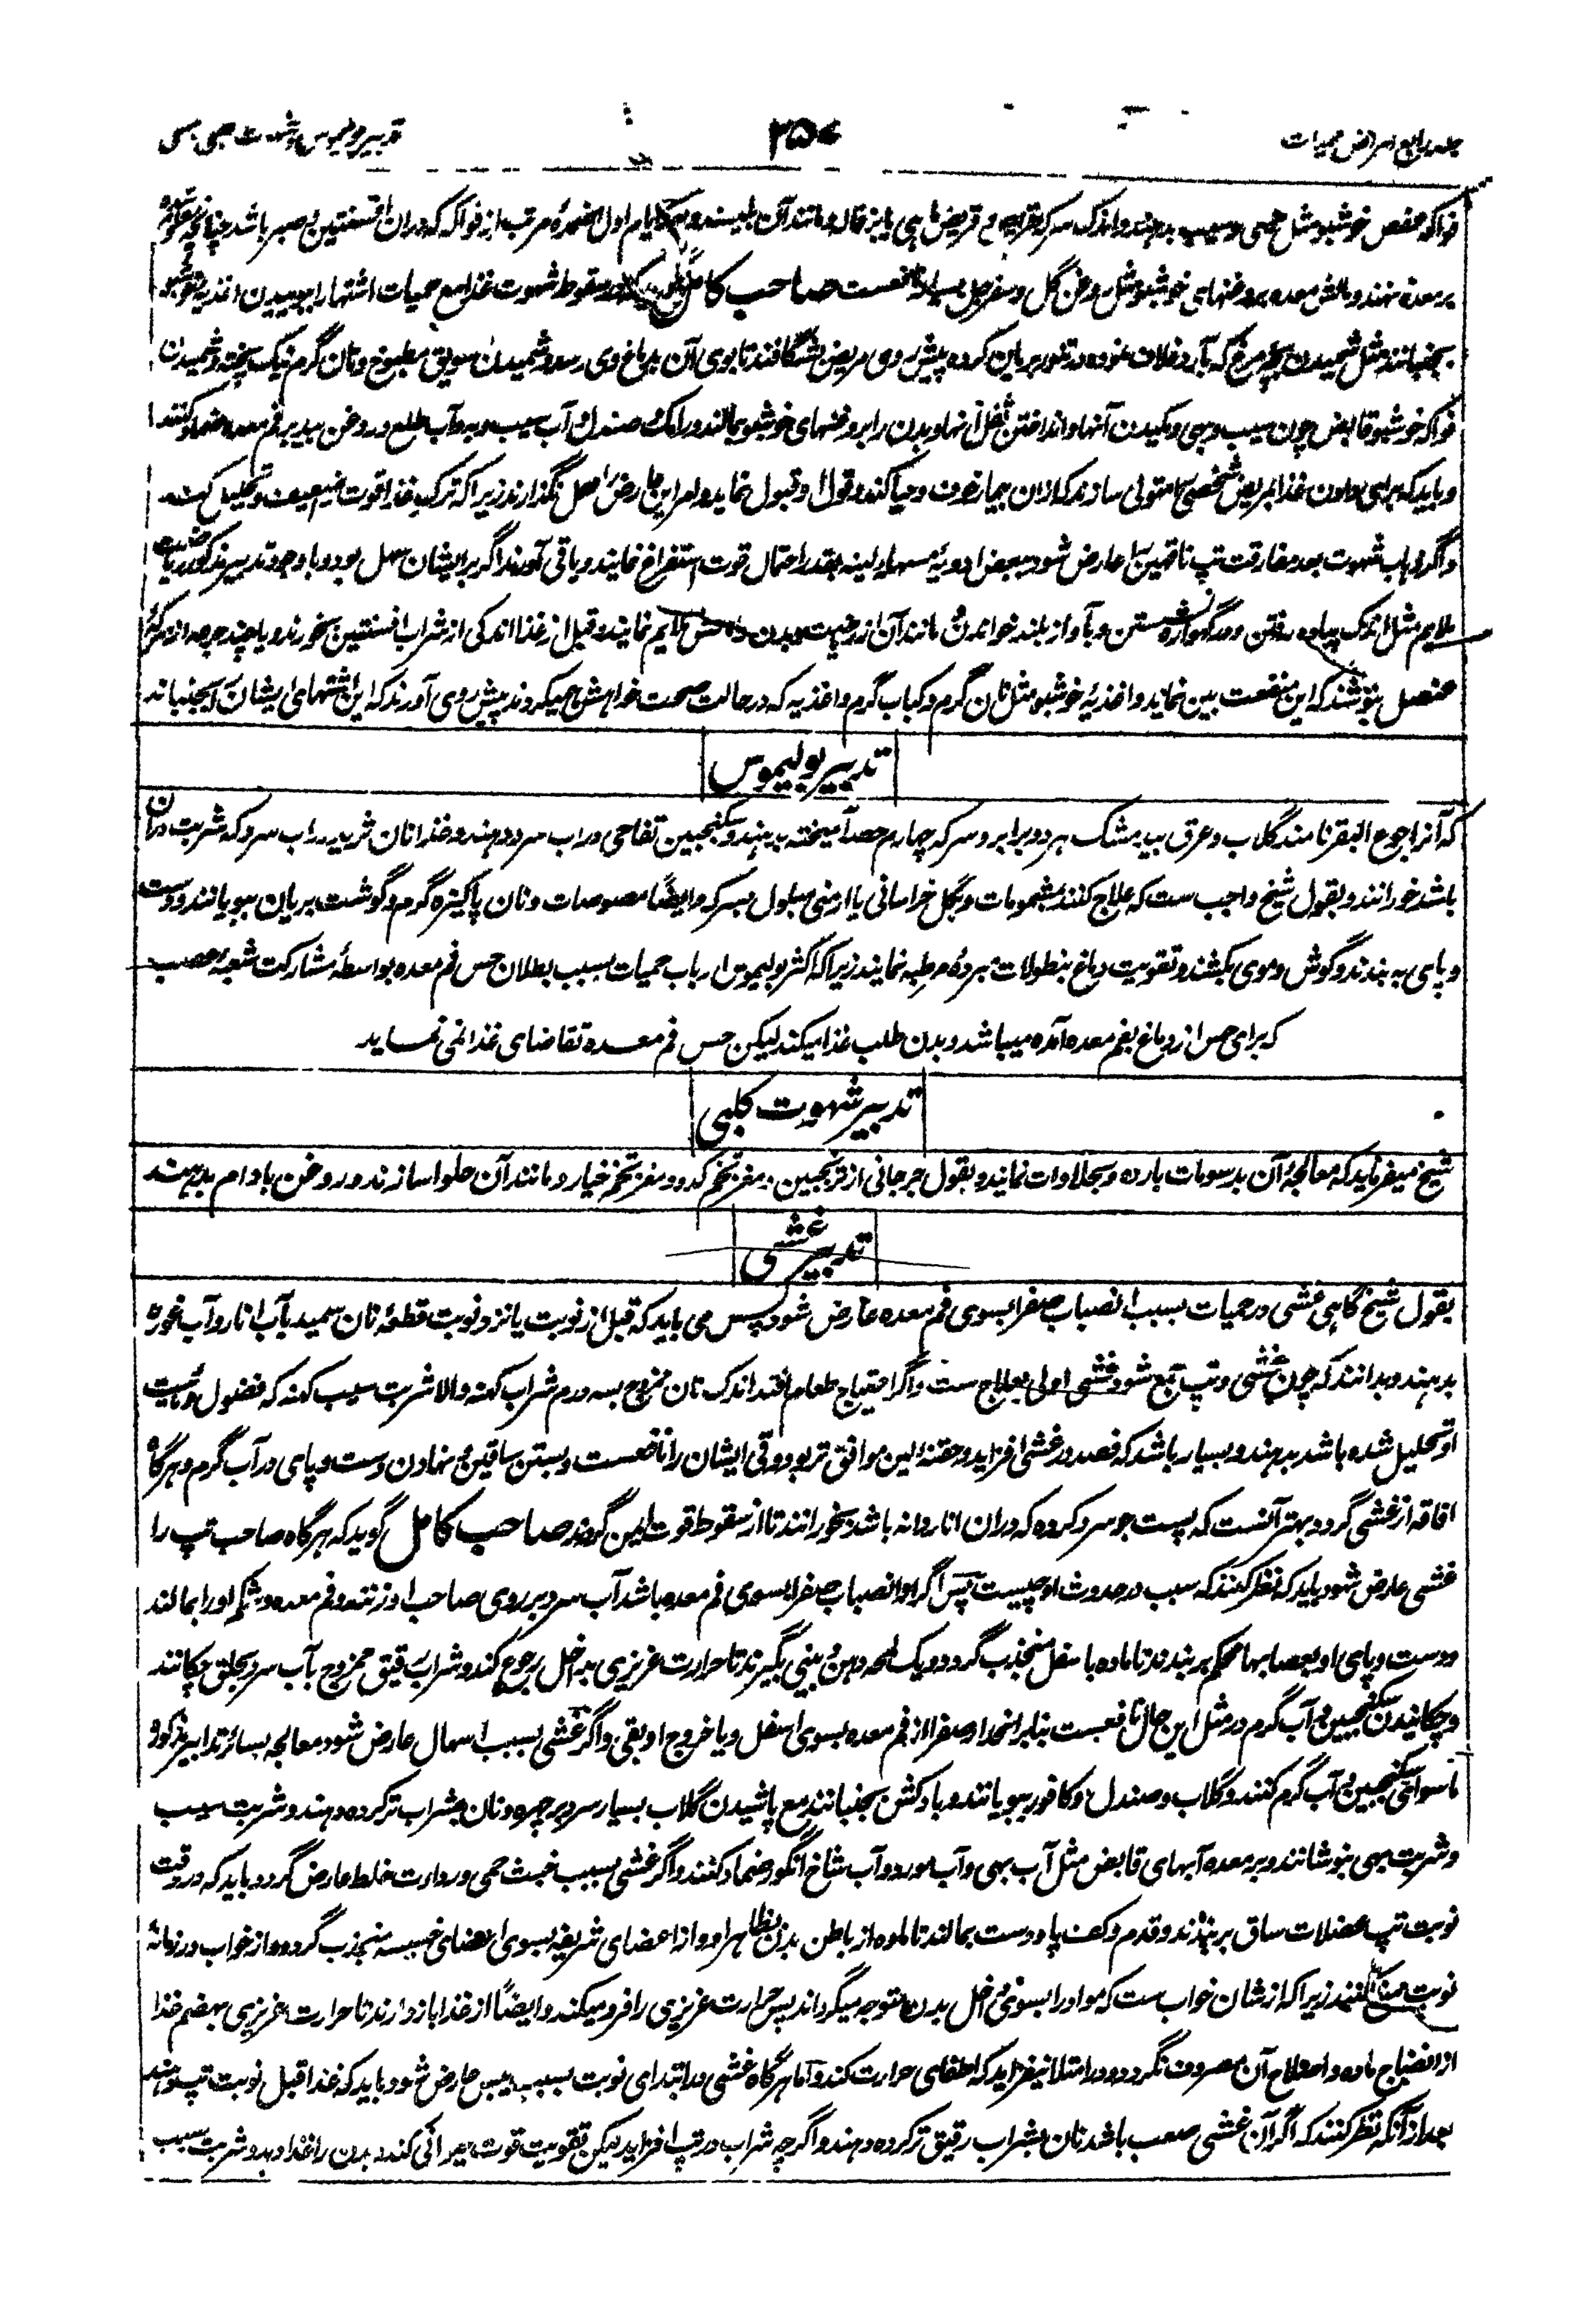 جلد رابع امراض حمیات
۳۵۷
تدبیر بولیموس و شهوت کلبی
فواکه عفص خوشبو مثل بهی و سیب بدهند و اندک سرکه و قریض ماهی یا بزغاله و مانند آن بلیسند و ایام اول ضمده مرتب از فواکه که دران افسنتین و صبر باشد چنانچه
بر معده نهند و مالش معده بروغنهای خوشبو مثل روغن گل و سفرجل بسیار نافعست صاحب کامل گوید که در سقوط شهوت غذا مع حمیات اشتها را ببوییدن اغذیه خوشبو
بجنبانند مثل شمیدن بچه مرغ که بآرد غلات نموده در تنور بریان کرده پیش روی مریض بشگافند تا بوی آن بدماغ وی رسد و شمیدن سویق مطبوخ و نان گرم نیک پخته و شمیدن
فواکه خوشبو قابض چون سیب و بهی و مکیدن آنها و انداختن ثفل آنها و بدن را بروغنهای خوشبو بمالند و رامک و صندل و آب سیب و به و آب طلع و روغن بید بر فم معده ضماد کنند
و باید که برای دادن غذا بمریض شخصی را متولی سازند که ازان بیمار خوف و حیا کند و قول او قبول نماید و امر این عارض را مهمل نگذارند زیرا که ترک غذا قوت ضعیف و تحلیل کند
و اگر ذهاب شهوت بعد مفارقت تپ ناقهین را عارض شود ببعض ادویهٔ مسهله لینه بقدر احتمال قوت استفراغ نمایند و باقی آورند اگر بر ایشان سهل بود و با وجود تدبیر مذکور ریاضت
ملایم مثل اندک پیاده رفتن و در گهواره نشستن و بآواز بلند خواندن و مانند آن از ریاضت و بدن دلک ملایم نمایند و قبل از غذا اندکی از شراب افسنتین بخورند و یا چند جرعه از سرکهٔ
عنصل بنوشند که این منفعت بین نماید و اغذیهٔ خوشبو مثل نان گرم و کباب گرم و اغذیه که در حالت صحت خواهش میکردند پیش وی آورند که این اشتهای ایشان را بجنباند
تدبیر بولیموس
که آنرا جوع البقر نامند گلاب و عرق بید مشک هر دو برابر و سرکه چهارم حصه آمیخته بدهند و سکنجبین تفاحی در آب سرد دهند و غذا نان ثرید در آب سرد که شربت دران
باشد خورانند و بقول شیخ واجب ست که علاج کنند بمشمومات و بگل خراسانی یا ارمنی مبلول بسرکه و ایضاً مصوصات و نان پاکیزه گرم و گوشت بریان ببویانند و دست
و پای به بندند و گوش و موی بکشند و تقویت دماغ بنطولات مبرده مرطبه نمایند زیرا که اکثر بولیموس ارباب حمیات بسبب بطلان حس فم معده بواسطهٔ مشارکت شعبهٔ عصب
که برای حس از دماغ بفم معده آمده میباشد و بدن طلب غذا میکند لیکن حس فم معده تقاضای غذا نمی نماید
تدبیر شهوت کلبی
شیخ میفرماید که معالجهٔ آن بدسومات بارده و بحلاوات نمایند و بقول جرجانی از ترنجبین و مغز تخم کدو و مغز تخم خیار و مانند آن حلوا سازند و روغن بادام بدهند
تدبیر غشی
بقول شیخ گاهی غشی در حمیات بسبب انصباب صفرا بسوی فم معده عارض شود پس می باید که قبل از نوبت یا نزد نوبت قطعهٔ نان سمید بآب انار و آب غوره
بدهند و بدانند که چون غشی و تپ جمع شود غشی اولی بعلاج ست و اگر احتیاج طعام افتد اندک نان ممزوج بسه درم شراب کهنه و الا شربت سیب کهنه که فضول و مائیت
او تحلیل شده باشد بدهند و بسیار باشد که فصد در غشی افزاید و حقنه لین موافق تر بود و قی ایشان را نافعست و بستن ساقین و نهادن دست و پای در آب گرم و هرگاه
افاقه از غشی گردد بهتر آنست که پست جو سرد کرده که دران انار دانه باشد بخورانند تا از سقوط قوت ایمن گردد صاحب کامل گوید که هرگاه صاحب تپ را
غشی عارض شود باید که نظر کنند که سبب در حدوث او چیست پس اگر او انصباب صفرا بسوی فم معده باشد آب سرد بر روی صاحب او زنند و فم معده و شکم او را بمالند
و دست و پای او بعصابها محکم بر بندند تا ماده باسفل منجذب گردد و یک لحظه دهن و بینی بگیرند تا حرارت غریزی بداخل رجوع کند و شراب رقیق ممزوج بآب سرد بحلق چکانند
و چکانیدن سکنجبین و آب گرم در مثل این حال نافعست بنابر انحدار صفرا از فم معده بسوی اسفل و یا خروج او بقی و اگر غشی بسبب اسهال عارض شود معالجه بسائر تدابیر مذکور و
ماسوای سکنجبین و آب گرم کنند و گلاب و صندل و کافور ببویانند و بادکش بجنبانند مع پاشیدن گلاب بسیار سرد بر چهره و نان بشراب تر کرده دهند و شربت سیب
و شربت بهی بنوشانند و بر معده آبهای قابض مثل آب بهی و آب مورد و آب شاخ انگور ضماد کنند و اگر غشی بسبب خبث حمی و رداءت خلط عارض گردد باید که در وقت
نوبت تپ عضلات ساق بر بندند و قدم و کف پا و دست بمالند تا ماده از باطن بدن بظاهر او و از اعضای شریفه بسوی اعضای خسیسه منجذب گردد و از خواب در زمانهٔ
نوبت منع کنند زیرا که از شان خواب ست که مواد را بسوی داخل بدن متوجه میگرداند پس حرارت غریزی را فرو میکند و ایضاً از غذا باز دارند تا حرارت غریزی بهضم غذا
از انضاج ماده و اصلاح آن مصروف نگردد و در امتلا نیفزاید که اطفای حرارت کند و اما هرگاه غشی در ابتدای نوبت بسبب یبس عارض شود باید که غذا قبل نوبت تپ دهند
بعد از آنکه نظر کنند که اگر آن غشی صعب باشد نان بشراب رقیق تر کرده دهند و اگر چه شراب در تپ افزاید لیکن تقویت قوت حیوانی کند و بدن را غذا دهد و شربت سیب